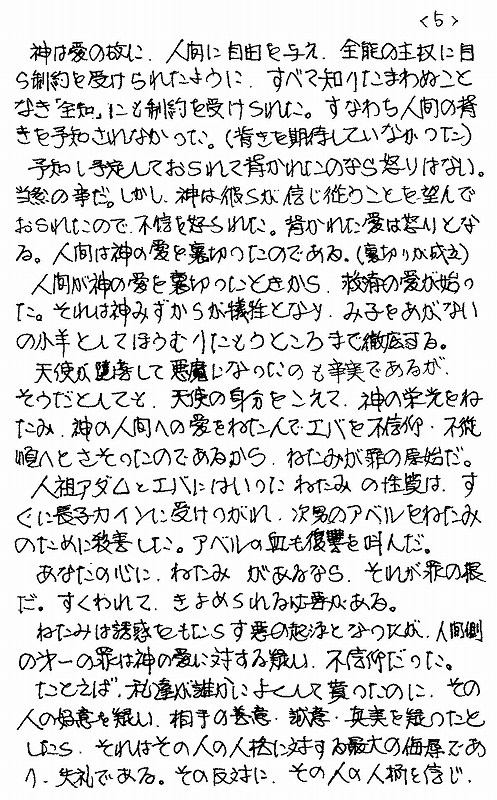 <5>
神は愛の故に、人間に自由を与え、全能の主権に自
ら制約を受けられたように、すべて知りたまわぬこと
なき「全知」にも制約を受けられた。すなわち人間の背
きを予知されなかった。(背きを期待していなかった)
予知し予定しておられて背かれたのなら怒りはない。
当然の事だ。しかし、神は彼らが信じ従うことを望んで
おられたので、不信を怒られた。背かれた愛は怒りとな
る。人間は神の愛を裏切ったのである。(裏切りが成立)
人間が神の愛を裏切ったときから、救済の愛が始っ
た。それは神みずからが犠牲となり、み子をあがない
の小羊としてほうむりたもうところまで徹底する。
天使が堕落して悪魔になったのも事実であるが、
そうだとしても、天使の身分をこえて、神の栄光をね
たみ、神の人間への愛をねたんでエバを不信仰・不従
順へとさそったのであるから、ねたみが罪の原始だ。
人祖アダムとエバにはいったねたみの性質は、す
ぐに長子カインに受けつがれ、次男のアベルをねたみ
のために殺害した。アベルの血も復讐を叫んだ。
あなたの心に、ねたみがあるなら、それが罪の根
だ。すくわれて、きよめられる必要がある。
ねたみは誘惑をもたらす悪の起法となったが、人間側
の才一の罪は神の愛に対する疑い、不信仰だった。
たとえば、私達が誰かによくして貰ったのに、その
人の好意を疑い、相手の善意・誠意・真実を疑ったと
したら、それはその人の人格に対する最大の侮辱であ
り、失礼である。その反対に、その人の人格を信じ、